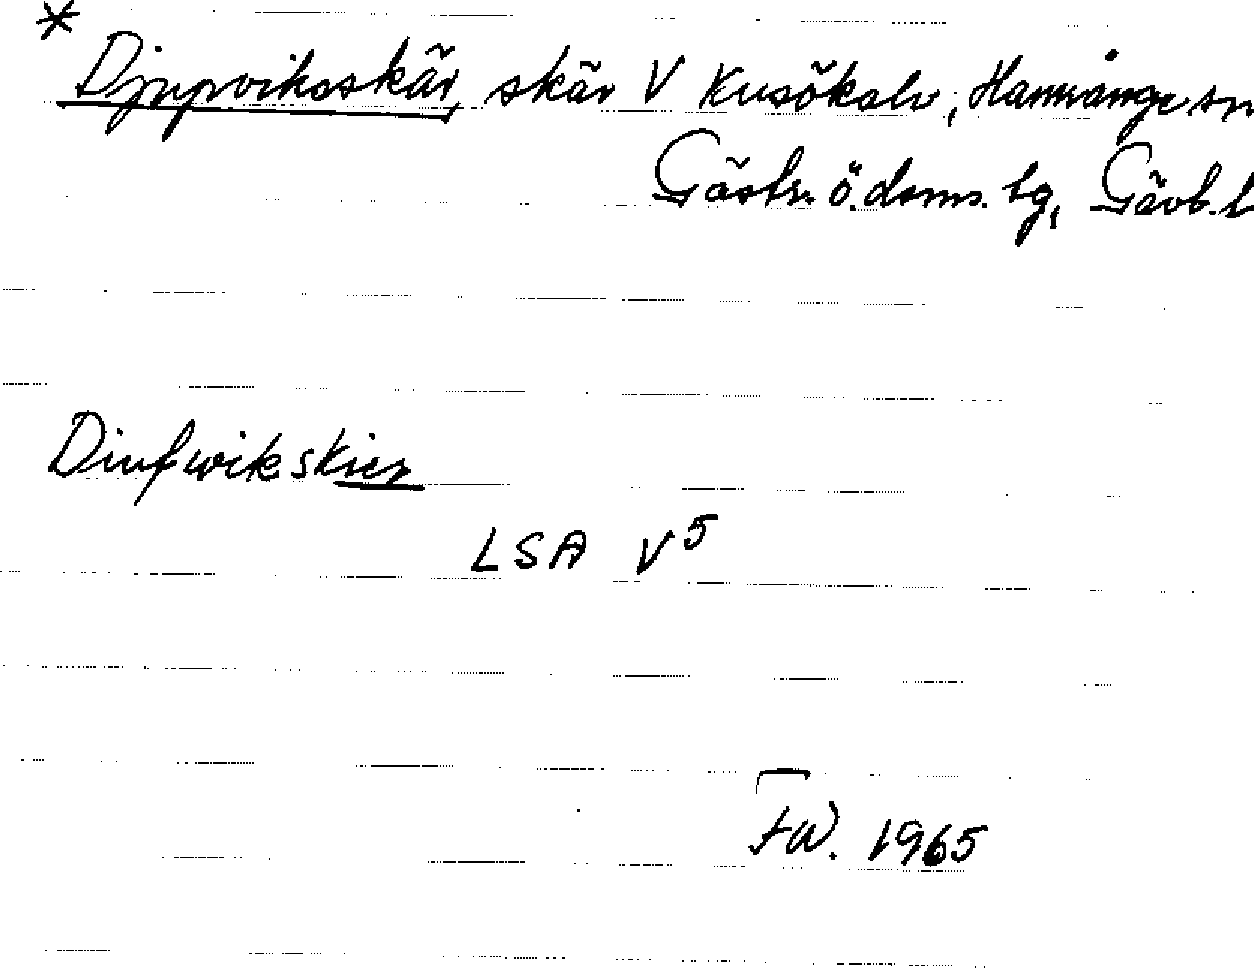 *
Djupviksskär, skär V Kusökalv, Hamrånge sn
Gästr. ö. doms. tg, Gävb. l
Diufwikskier
LSA V5
FW. 1965